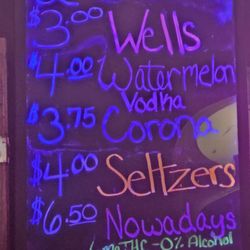 $3.00 Wells
$4.00 Watermelon
Vodka
$3.75 Corona
$4.00 Seltzers
$6.50 Nowadays
mg THC - 0% Alcohol